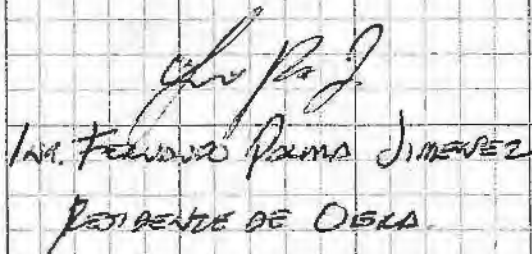 Ing. Fernando Palma Jimenez
Residente de Obra.